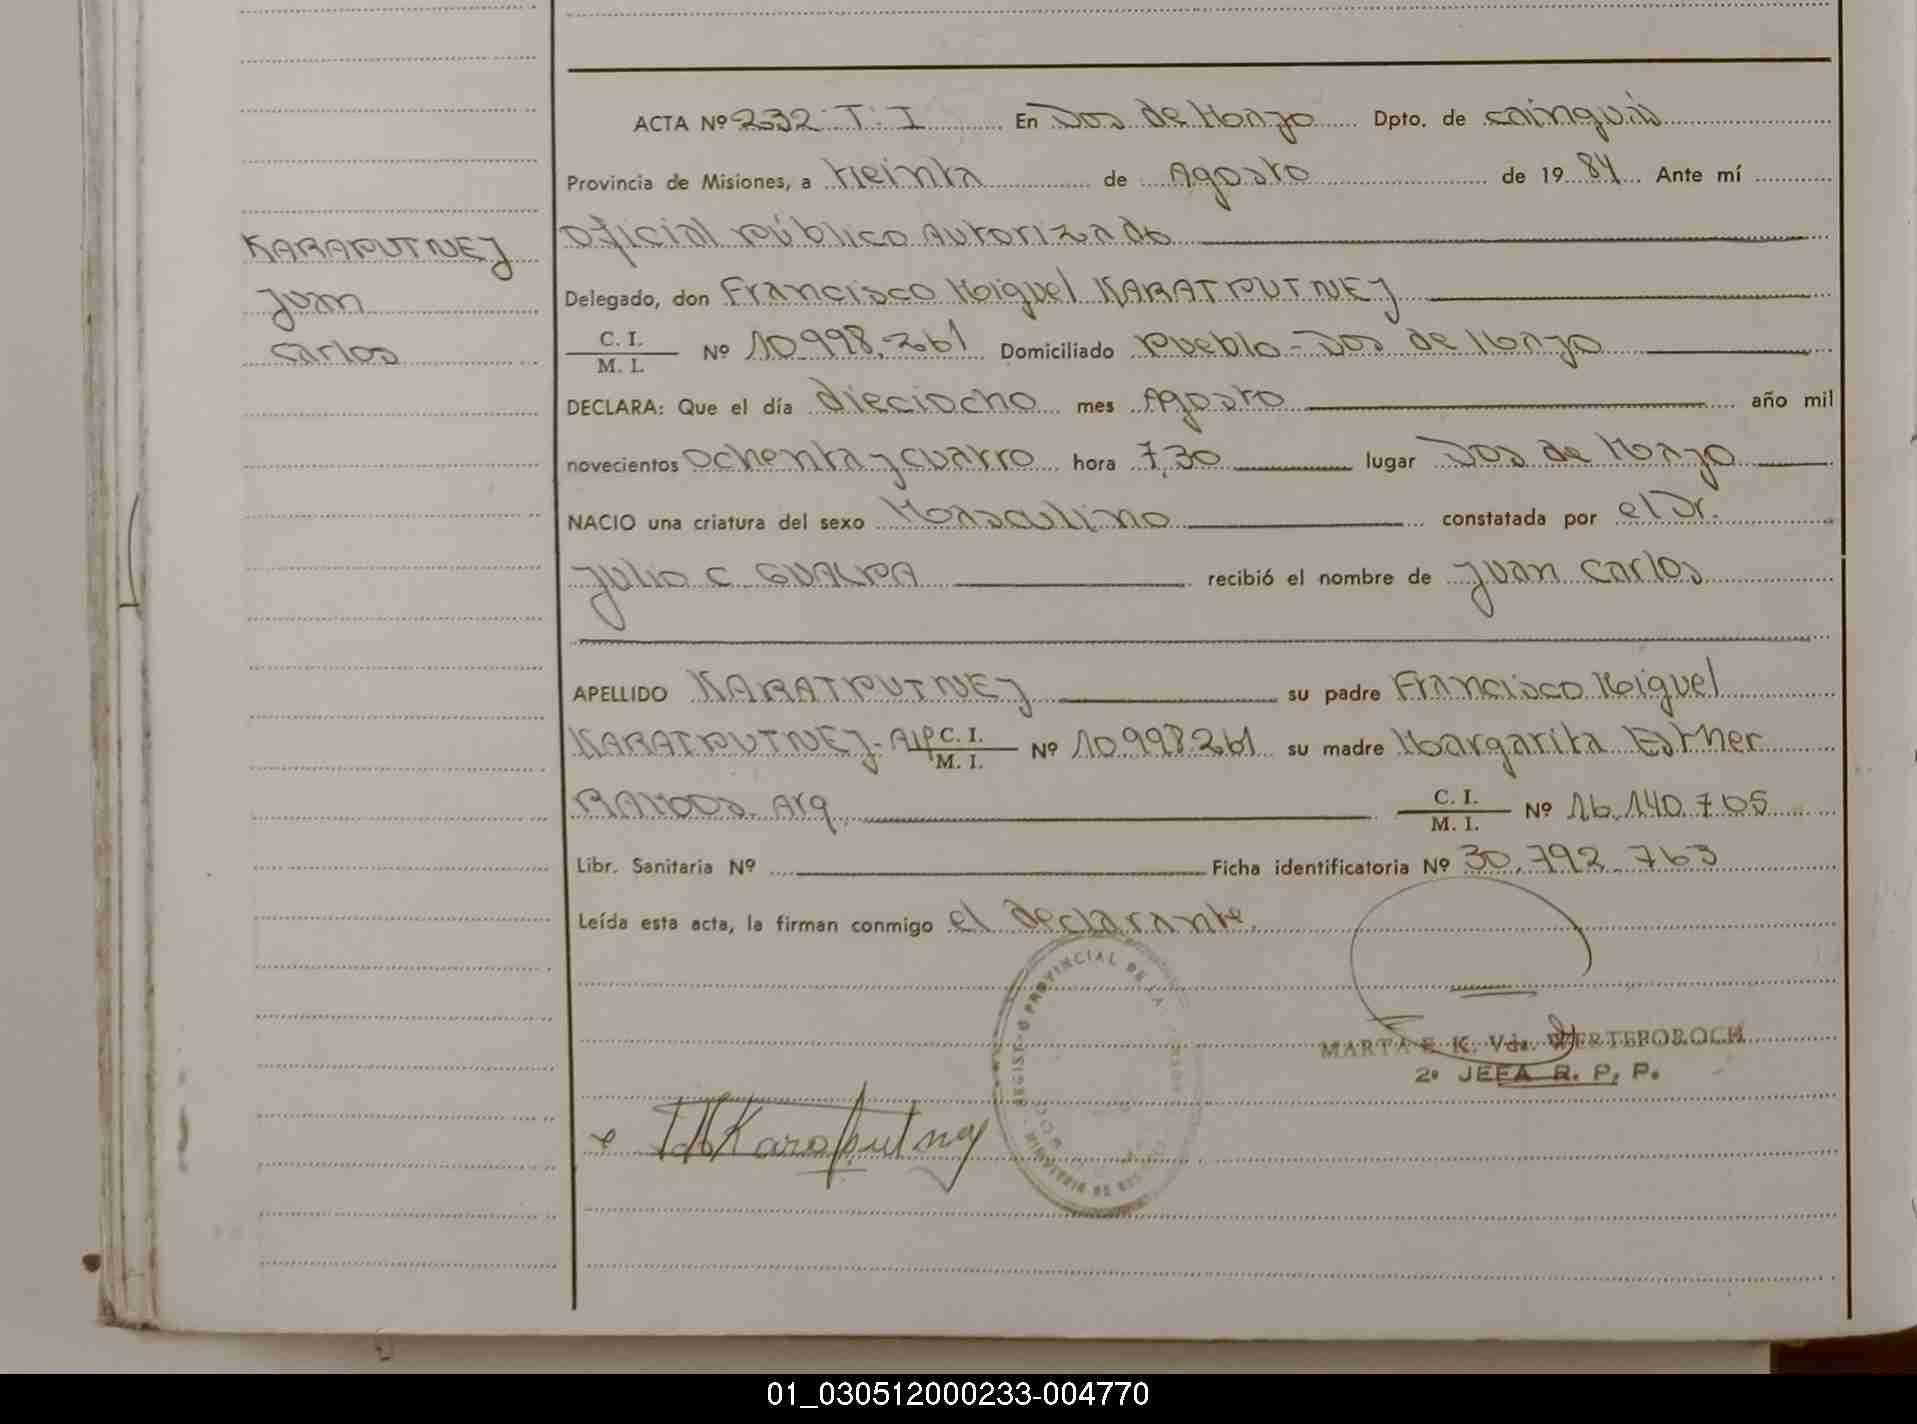 ACTA Nº 232 T: I En Dos de Mayo Dpto. de Cainguás
Provincia de Misiones, a treinta de Agosto de 1984 Ante mí
Oficial Público Autorizado
KARAPUTNEJ
Delegado, don Francisco Miguel KARATPUTNEJ
Juan
C. I.
M. I. Nº 10.998.261 Domiciliado Pueblo - Dos de Mayo
Carlos
DECLARA: Que el día dieciocho mes Agosto año mil
novecientos ochenta y cuatro hora 7,30 lugar Dos de Mayo
NACIO una criatura del sexo Masculino constatada por el Dr.
Julio C. GUALPA recibió el nombre de Juan Carlos
APELLIDO KARATPUTNEJ su padre Francisco Miguel
KARATPUTNEJ - Arg C. I. M. I. Nº 10.998.261 su madre Margarita Esther
RAMOS - Arg. C. I. M. I. Nº 16.140.705
Libr. Sanitaria Nº Ficha identificatoria Nº 30.792.763
Leída esta acta, la firman conmigo el declarante.
PROVINCIAL DE
MARTA E. K. Vda. WERTEPOROCH
2º JEFA R. P. P.
Karaputnej
01_030512000233-004770